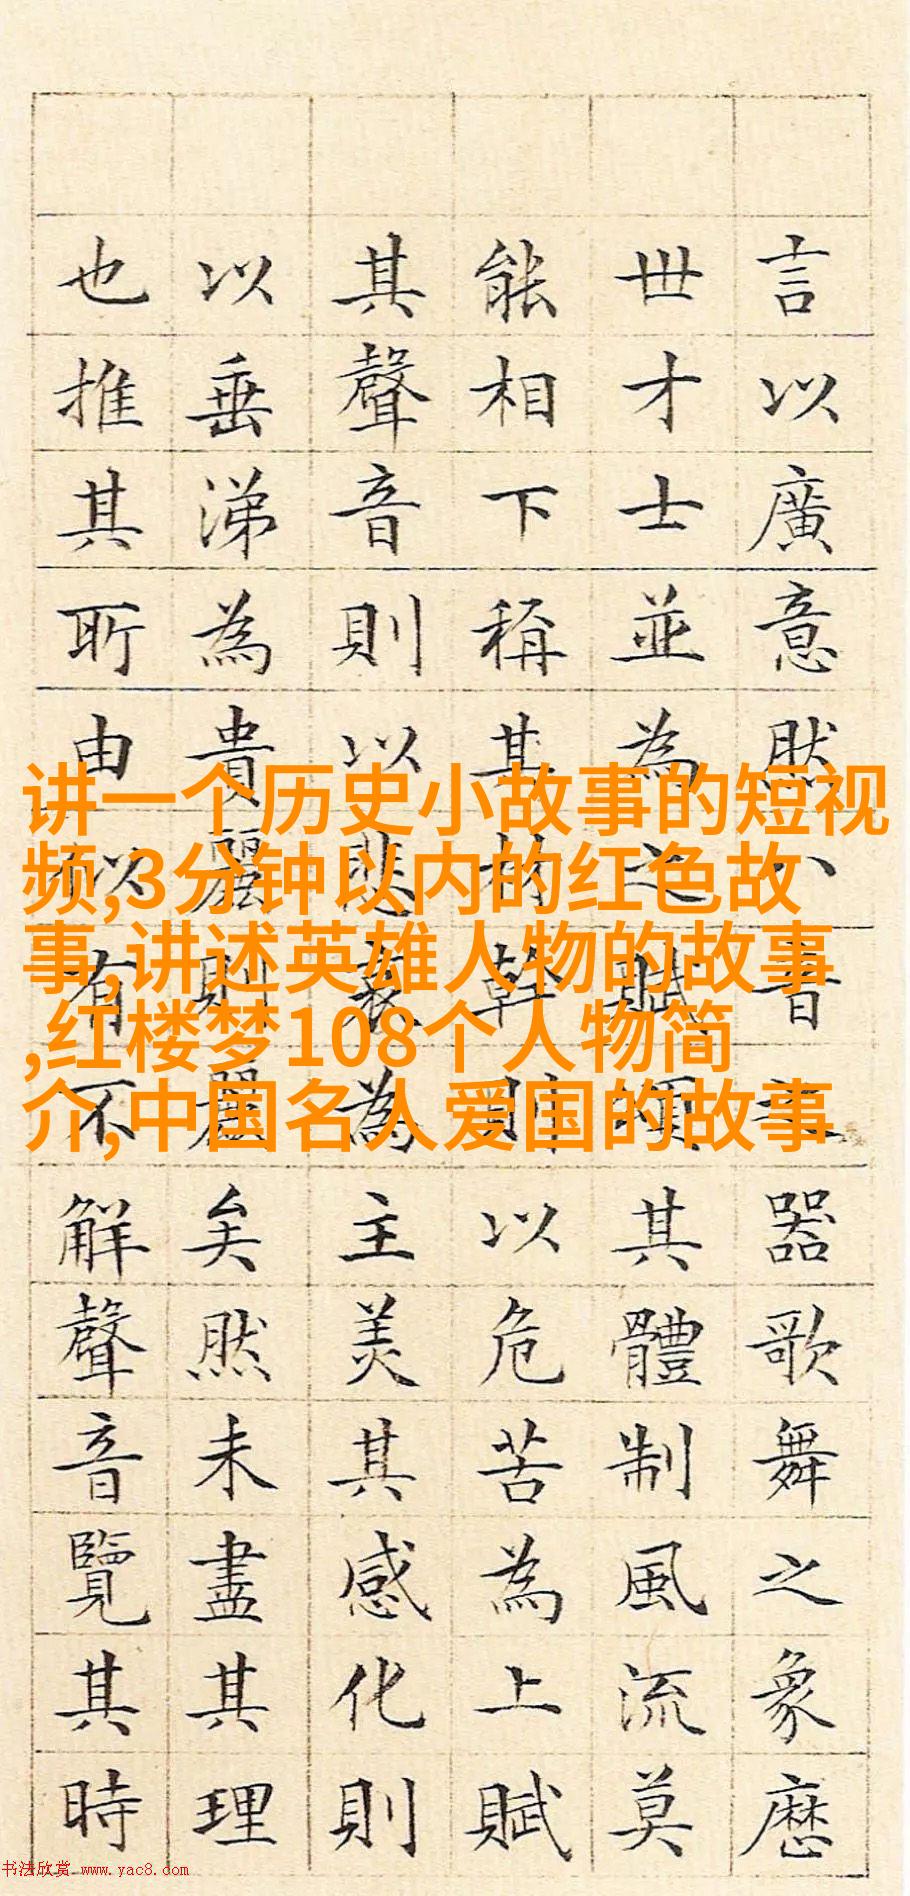 言以廣意然八音之器歌舞之象歷
世才士並為之賦頌其體制風流莫
能相下稱其材幹則以危苦為上賦
其聲音則以悲哀為主美其感化則
以垂涕為貴麗則麗矣然未盡其理
也推其所由似有不解聲音覽其時
讲一个历史小故事的短视
频,3分钟以内的红色故
事,讲述英雄人物的故事
,红楼梦108个人物简
介,中国名人爱国的故事
书法欣赏 www.yac8.com